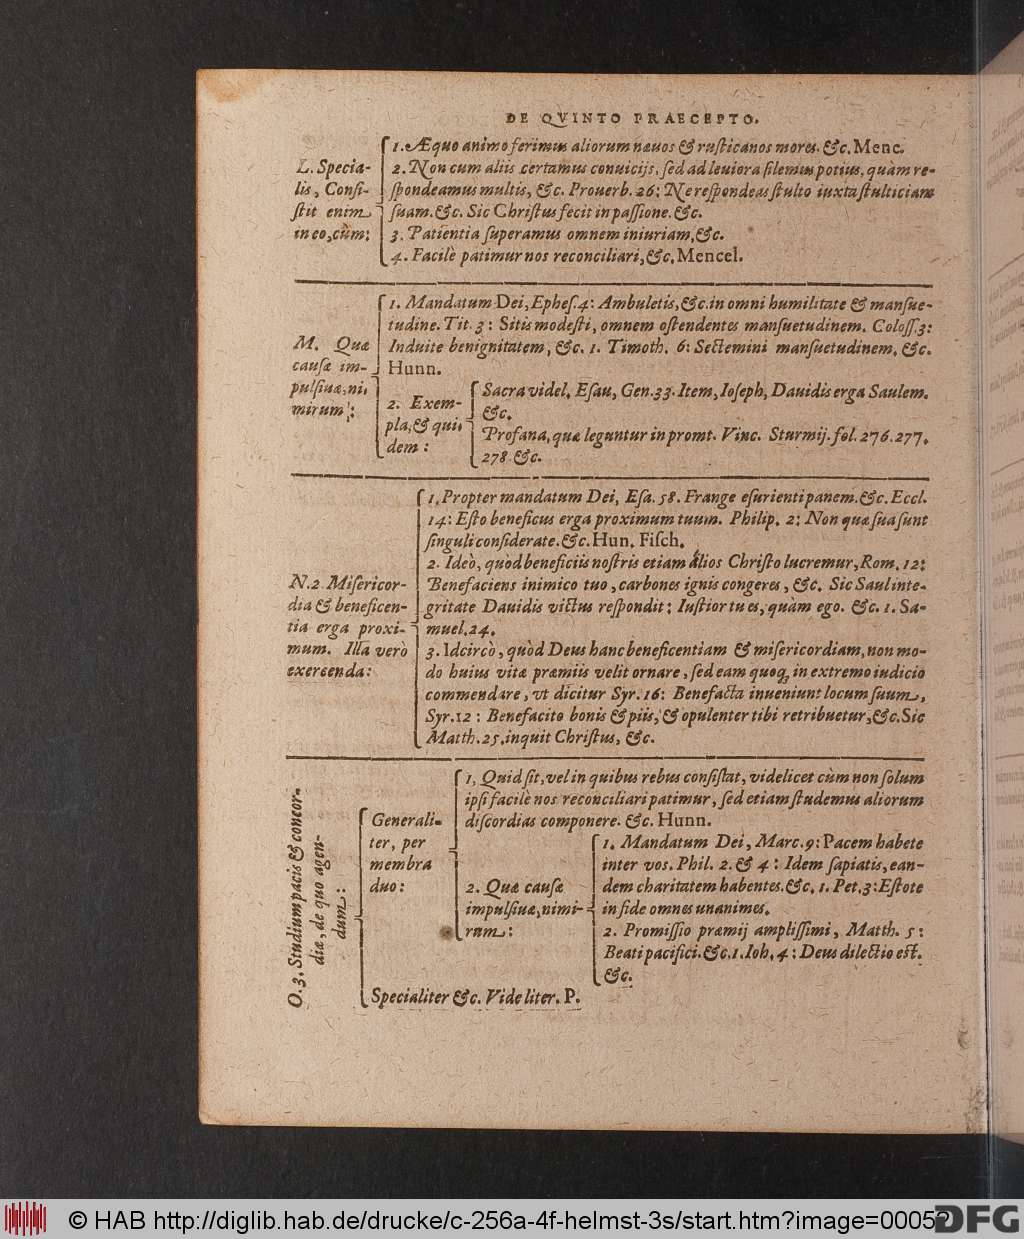 DE QVINTO PRAECEPTO.
L. Specia-
lis, Consi-
stit enim
in eo, cùm:
1. Æquo animo ferimus aliorum nævos & rusticanos mores. &c. Menc.
2. Non cum aliis certamus convicijs, sed ad leviora silemus potius, quàm re-
spondeamus multis, &c. Prouerb. 26: Ne respondeas stulto iuxta stulticiam
suam. &c. Sic Christus fecit in passione. &c.
3. Patientia superamus omnem iniuriam, &c.
4. Facilè patimur nos reconciliari, &c, Mencel.
M. Quæ
causæ im-
pulsiuæ, ni,
mirum:
1. Mandatum Dei, Ephes. 4: Ambuletis, &c. in omni humilitate & mansue-
tudine. Tit. 3: Sitis modesti, omnem ostendentes mansuetudinem. Coloss. 3:
Induite benignitatem, &c. 1. Timoth. 6: Sectemini mansuetudinem, &c.
Hunn.
2. Exem-
pla, & qui,
dem:
Sacra videl. Esau, Gen. 33. Item, Ioseph, Dauidis erga Saulem.
&c.
Profana, quæ leguntur in promt. Vinc. Sturmij. fol. 276. 277.
278 &c.
N. 2 Misericor-
dia & beneficen-
tia erga proxi-
mum. Illa verò
exercenda:
1. Propter mandatum Dei, Esa. 58. Frange esurienti panem. &c. Eccl.
14: Esto beneficus erga proximum tuum. Philip. 2: Non quæ sua sunt
singuli considerate. &c. Hun. Fisch.
2. Ideò, quòd beneficiis nostris etiam alios Christo lucremur, Rom. 12:
Benefaciens inimico tuo, carbones ignis congeres, &c. Sic Saul inte-
gritate Dauidis victus respondit: Iustior tu es, quàm ego. &c. 1. Sa-
muel. 24.
3. Idcircò, quòd Deus hanc beneficentiam & misericordiam, non mo-
do huius vitæ præmiis velit ornare, sed eam quoq; in extremo iudicio
commendare, vt dicitur Syr. 16: Benefacta inueniunt locum suum,
Syr. 12: Benefacito bonis & piis, & opulenter tibi retribuetur, &c. Sic
Matth. 25. inquit Christus, &c.
O. 3. Studium pacis & concor-
diæ, de quo agen-
dum:
Generali-
ter, per
membra
duo:
1, Quid sit, vel in quibus rebus consistat, videlicet cùm non solum
ipsi facilè nos reconciliari patimur, sed etiam studemus aliorum
discordias componere. &c. Hunn.
2. Quæ causæ
impulsiuæ, nimi-
rum:
1. Mandatum Dei, Marc. 9: Pacem habete
inter vos. Phil. 2. & 4: Idem sapiatis, ean-
dem charitatem habentes. &c, 1. Pet. 3: Estote
in fide omnes unanimes.
2. Promissio præmij amplissimi, Matth. 5:
Beati pacifici. &c. 1. Ioh. 4: Deus dilectio est.
&c.
Specialiter &c. Vide liter. P.
© HAB http://diglib.hab.de/drucke/c-256a-4f-helmst-3s/start.htm?image=00052
DFG